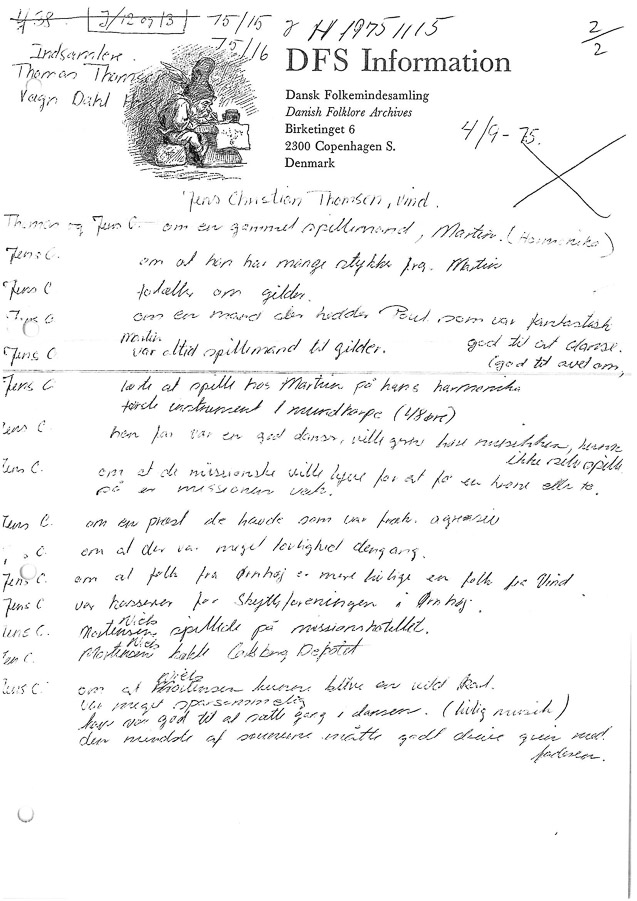 75/15 H 1975/1/15
75/16
2/2
Indsamlere.
Thomas Thomsen
Vagn Dahl
DFS Information
Dansk Folkemindesamling
Danish Folklore Archives
Birketinget 6
2300 Copenhagen S.
Denmark
4/9-75.
Jens Christian Thomsen, Vind.
Thomas og Jens C. om en gammel spillemand, Martin. (Harmonika)
Jens C. om at han har mange stykker fra Martin
Jens C fortæller om gilder.
Jens C om en mand der hedder Poul som var fantastisk
god til at danse.
Jens C. Martin var altid spillemand til gilder.
(god til at
Jens C. at spille hos Martin på hans harmonika
første instrument 1 mundharpe (48 øre)
Jens C. far var en god danser, ville have musikken, kunne
ikke selv spille
Jens C. om at de missionske ville for at en eller to.
på missionen
Jens C. om en præst de havde som var
Jens C. om at der var meget dengang.
Jens C. om at folk fra Ørnhøj er mere livlige en folk fra Vind
Jens C var kasserer for Skytteforeningen i Ørnhøj.
Jens C. Niels Mortensen spillede på missionshotellet.
Jens C. Niels Mortensen havde Carlsberg Depotet
Jens C. om at Niels Mortensen kunne blive en vild
var meget sparsommelig
var god til at sætte gang i dansen. (livlig musik)
den mindste af sønnerne måtte godt